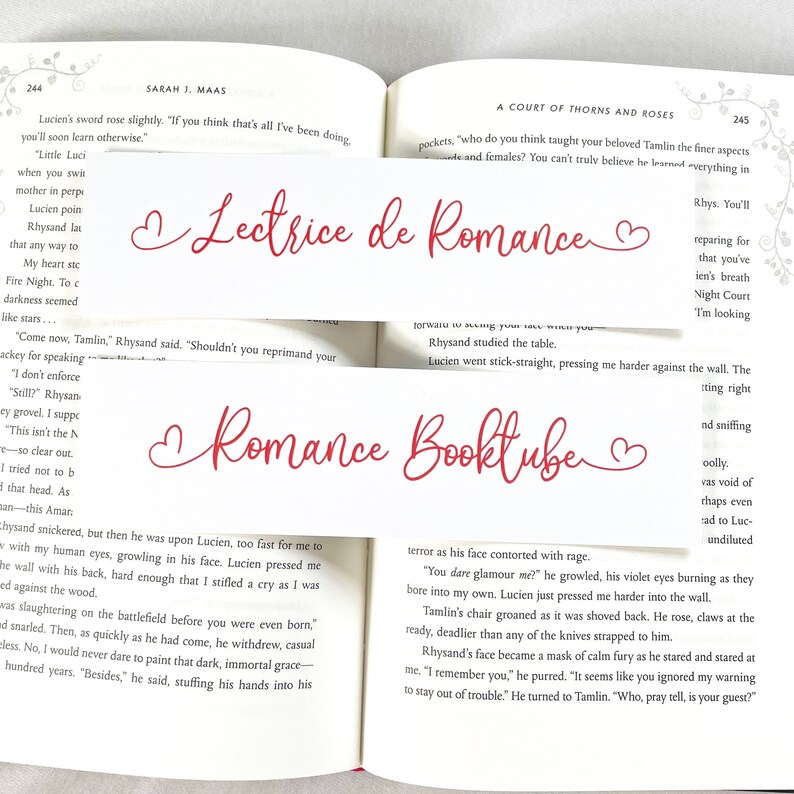 244
SARAH J. MAAS
Lucien's sword rose slightly. “If you think that's all I've been doing,
you'll soon learn otherwise.”
“Little Luci
when you swi
mother in perpe
Lucien poin
Rhysand lau
that any way to
My heart sto
Fire Night. To c
darkness seemed
like stars . . .
“Come now, Tamlin,” Rhysand said. “Shouldn't you reprimand your
ackey for speaking to me like that?”
“I don't enforce
“Still?” Rhysan
ey grovel. I suppo
“This isn't the N
re—so clear out.
I tried not to b
d that head. As
nan—this Amar
Rhysand snickered, but then he was upon Lucien, too fast for me to
w with my human eyes, growling in his face. Lucien pressed me
the wall with his back, hard enough that I stifled a cry as I was
ed against the wood.
was slaughtering on the battlefield before you were even born,”
d snarled. Then, as quickly as he had come, he withdrew, casual
eless. No, I would never dare to paint that dark, immortal grace—
hundred years. “Besides,” he said, stuffing his hands into his
Lectrice de Romance
Romance Booktube
A COURT OF THORNS AND ROSES
245
pockets, “who do you think taught your beloved Tamlin the finer aspects
of swords and females? You can't truly believe he learned everything in
Rhys. You'll
reparing for
that you've
ien's breath
Night Court
I'm looking
forward to seeing your face when you—
Rhysand studied the table.
Lucien went stick-straight, pressing me harder against the wall. The
tting right
nd sniffing
oolly.
was void of
rhaps even
ead to Luc-
undiluted
terror as his face contorted with rage.
“You dare glamour me?” he growled, his violet eyes burning as they
bore into my own. Lucien just pressed me harder into the wall.
Tamlin's chair groaned as it was shoved back. He rose, claws at the
ready, deadlier than any of the knives strapped to him.
Rhysand's face became a mask of calm fury as he stared and stared at
me. “I remember you,” he purred. “It seems like you ignored my warning
to stay out of trouble.” He turned to Tamlin. “Who, pray tell, is your guest?”